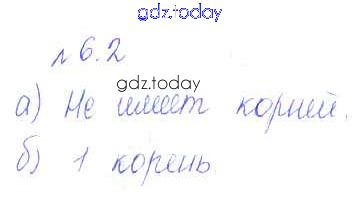 gdz.today
№ 6.2
gdz.today
а) Не имеет корней.
б) 1 корень